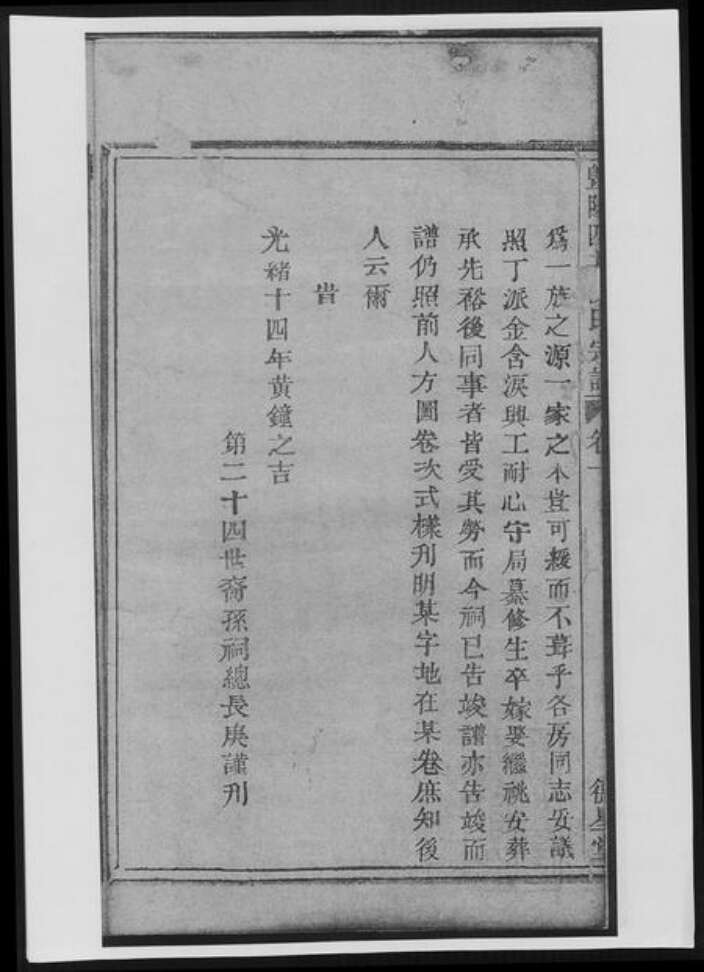 為一族之源一家之本豈可緩而不葺乎各房同志妥議
照丁派金含淚興工耐心守局纂修生卒嫁娶繼祧安葬
承先裕後同事者皆受其勞而今祠已告竣譜亦告竣而
譜仍照前人方圖卷次式樣刋明某字地在某卷庶知後
人云爾
旹
光緒十四年黄鐘之吉
第二十四世裔孫祠總長庚謹刋
氏宗譜 卷一